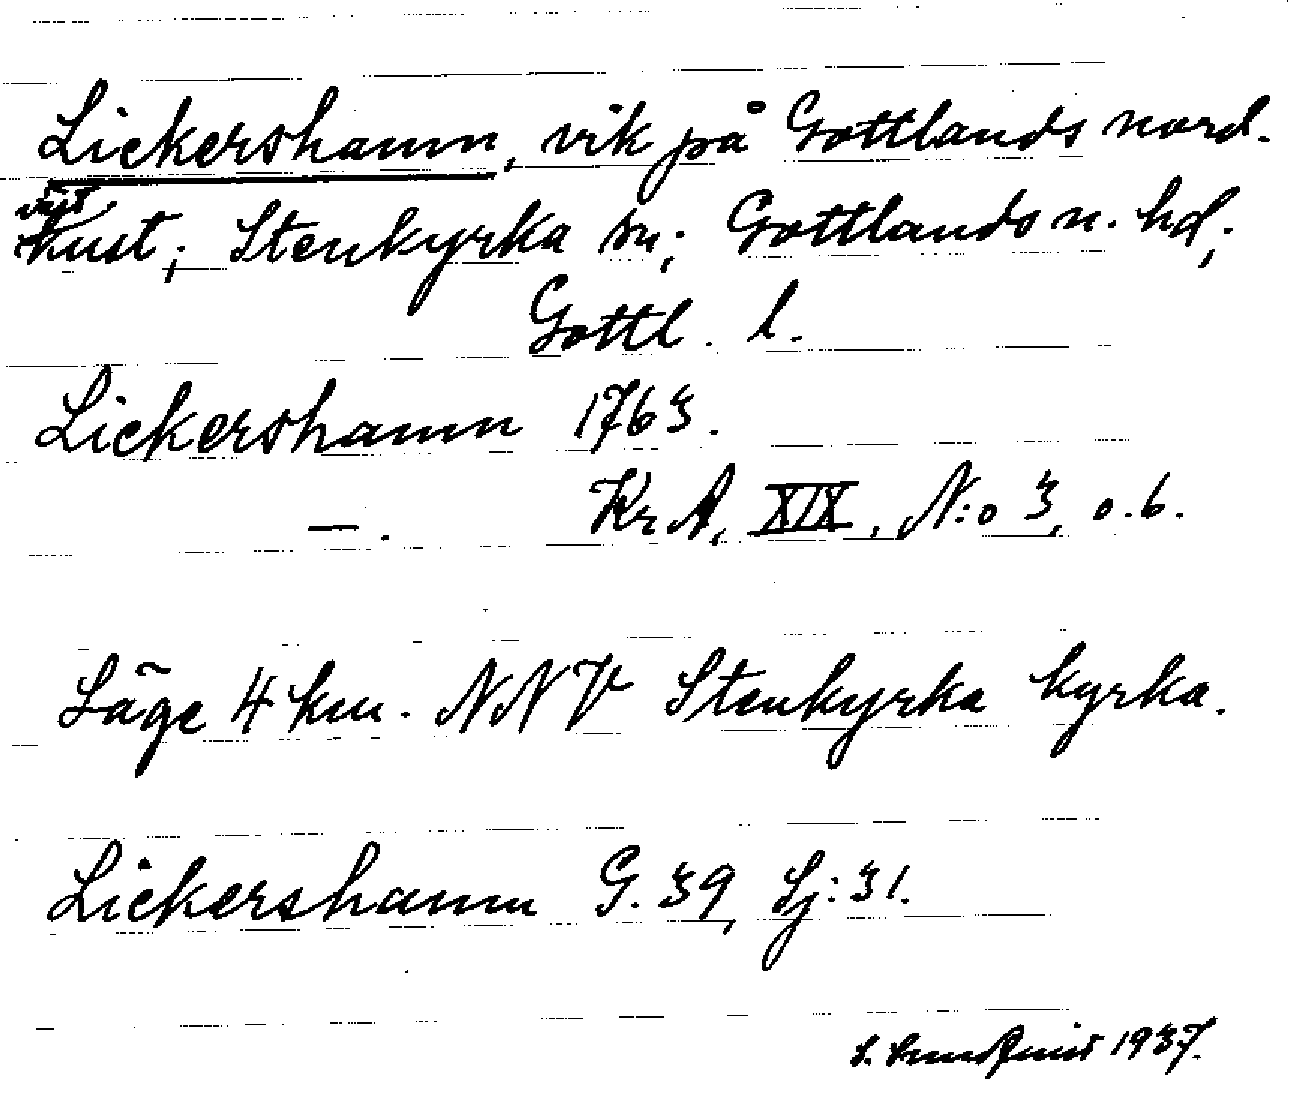 Lickershamn, vik på Gottlands nord-
väst
kust; Stenkyrka sn; Gottlands n. hd;
Gottl. l.
Lickershamn 1763.
—. KrA, XIX, N:o 3, o.6.
Läge 4 km. NNV Stenkyrka kyrka.
Lickershamn G. 39, Sj: 31.
1937.